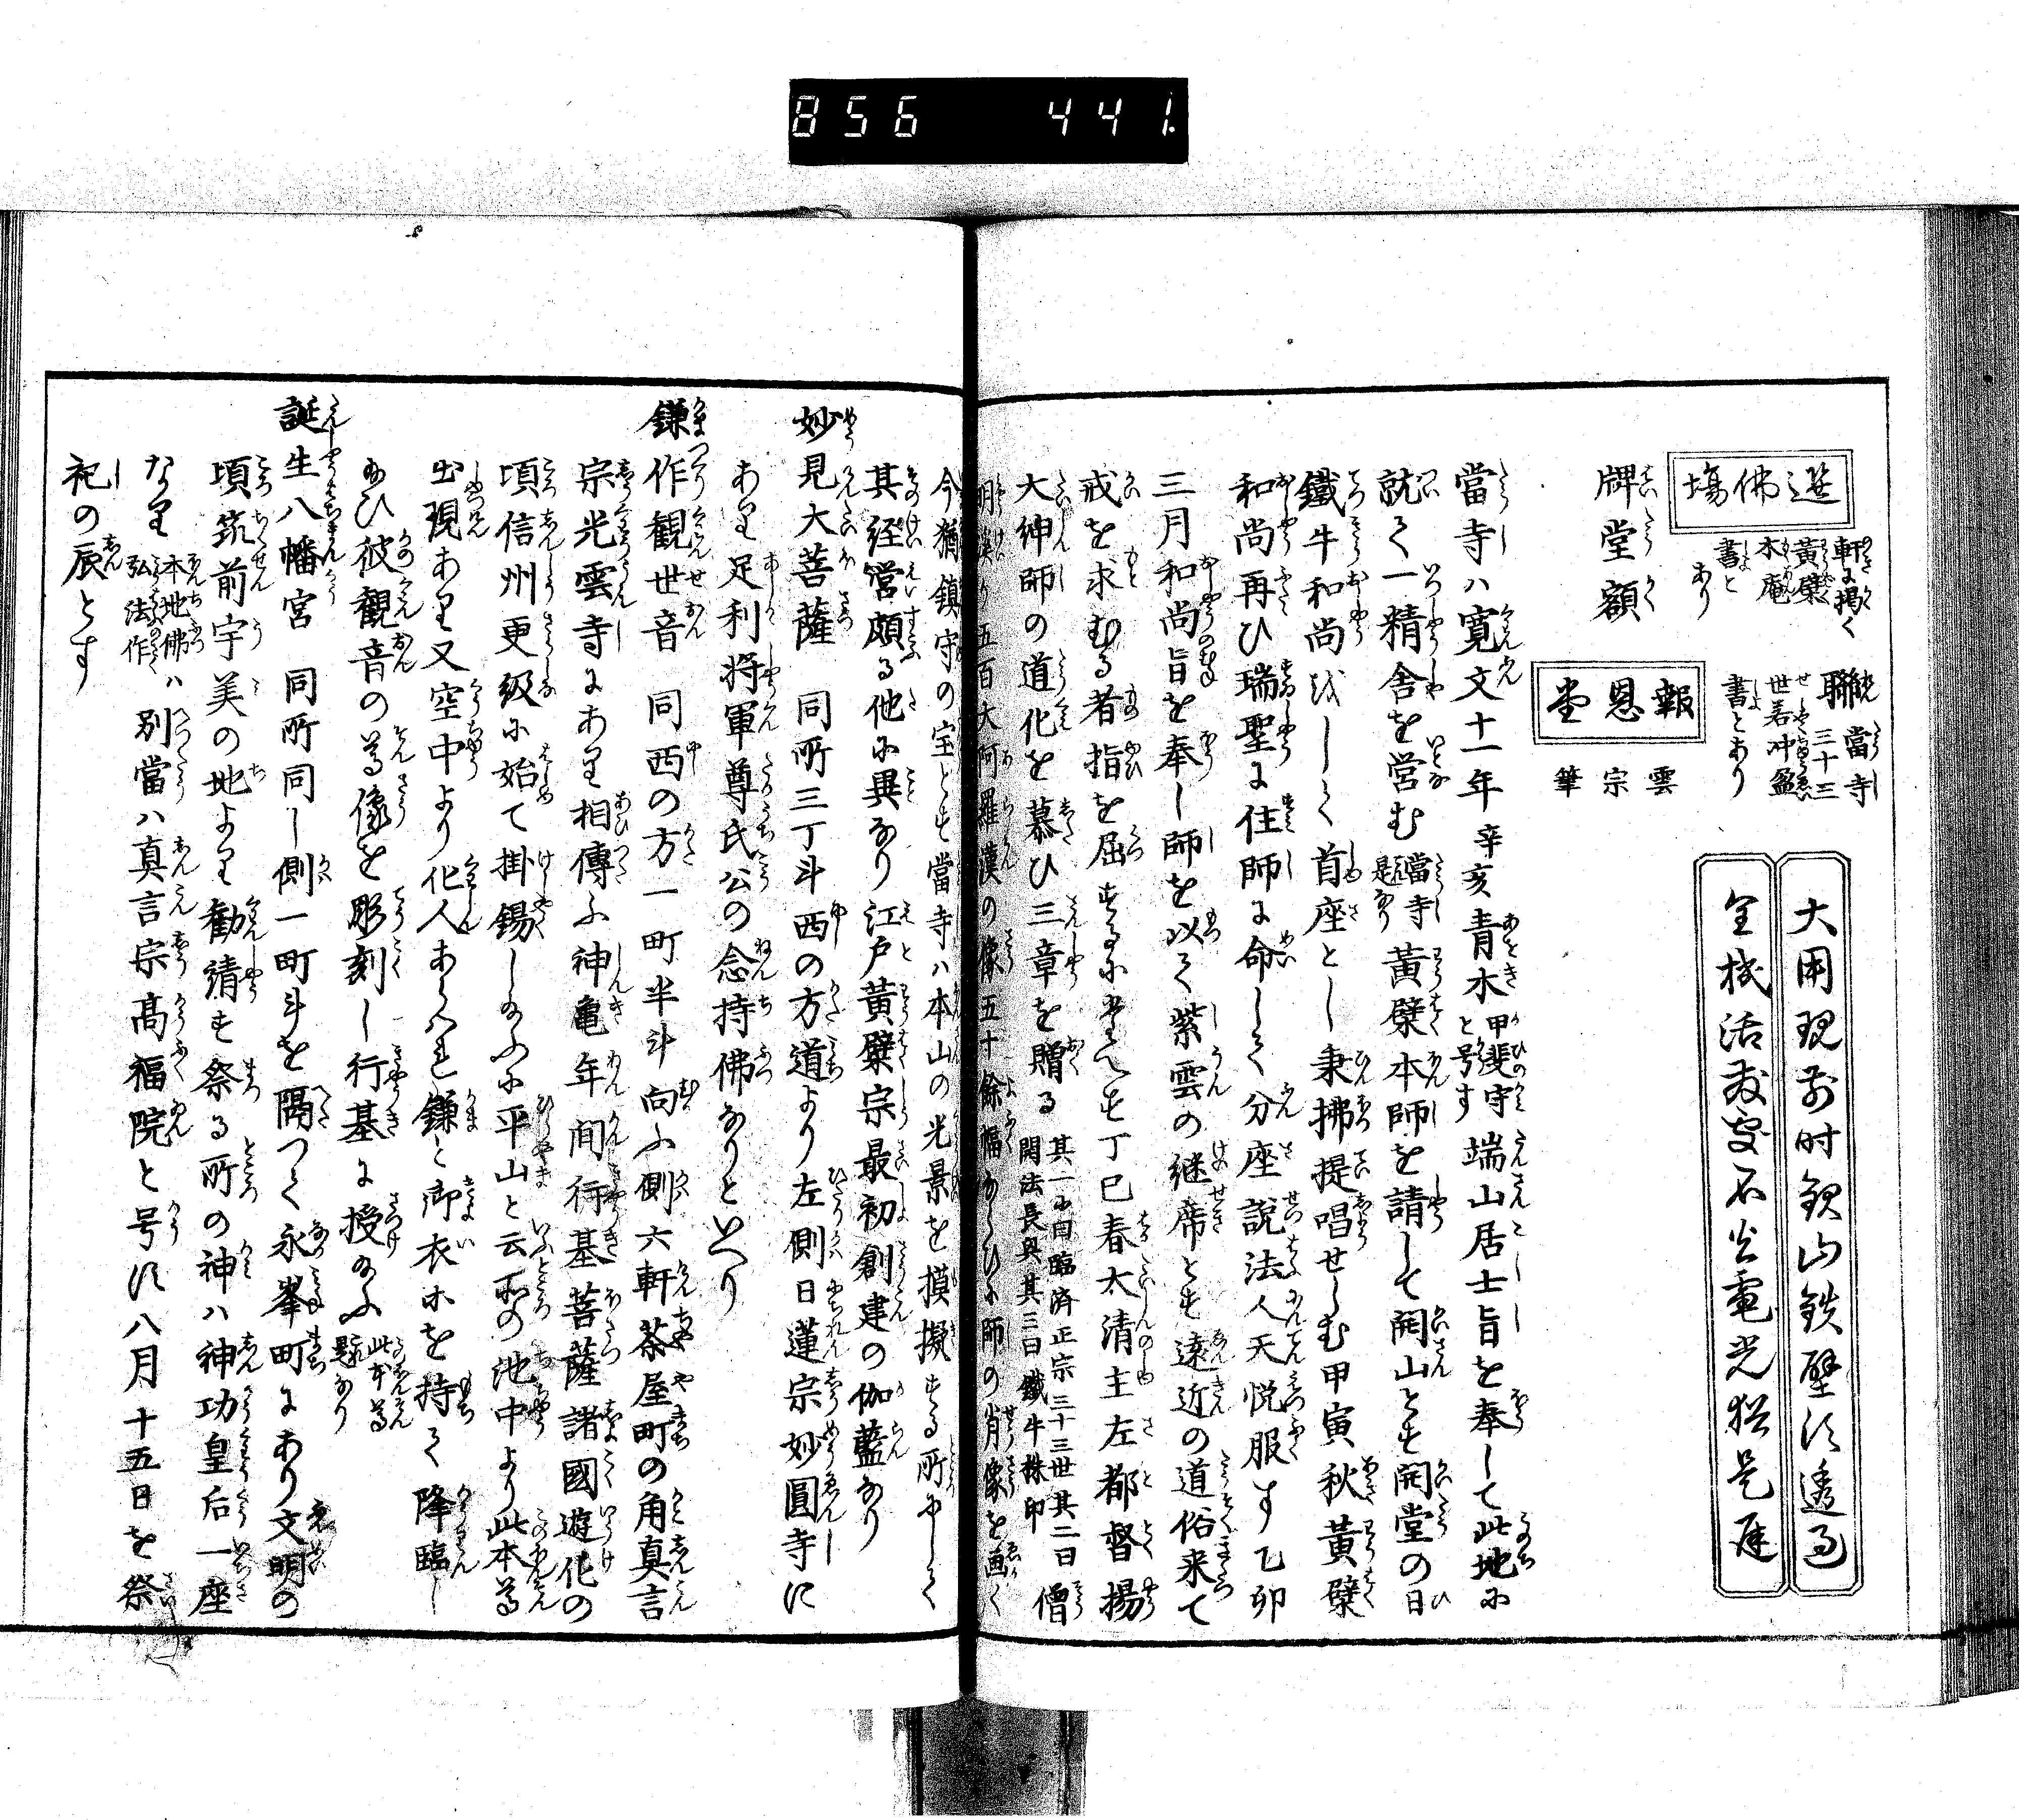 856 441.
選佛場
軒に掲く
黄檗
木庵
書と
あり
聯 當寺
三十三
世若冲盈
書とあり
大用現前时銀山鉄壁須透過
全機活敖安石火電光猶是遅
牌堂額
報恩堂
雲宗筆
當寺ハ寛文十一年辛亥青木甲斐守端山居士旨を奉して此地に
と号す
就く一精舎を営む當寺黄檗本師を請して開山とす開堂の日
是なり
鐵牛和尚をして首座とし秉拂提唱せしむ甲寅秋黄檗
和尚再ひ瑞聖に住師に命して分座説法人天悦服す乙卯
三月和尚旨を奉し師を以て紫雲の継席とす遠近の道俗来て
戒を求むる者指を屈するに遑あらす丁巳春太清主左都督揚
大紳師の道化を慕ひ三章を贈る其一曰臨済正宗三十三世其二曰僧
開法長與其三曰鐵牛株印
明渓り五百大阿羅漢の像五十餘福ならひに師の肖像を画く
今猶鎮守の宝とす當寺ハ本山の光景を摸擬する所にして
其経営頗る他に異なり江戸黄檗宗最初創建の伽藍なり
妙見大菩薩 同所三丁斗西の方道より左側日蓮宗妙圓寺に
あり足利将軍尊氏公の念持佛なりといへり
鎌作観世音 同西の方一町半斗向ふ側六軒茶屋町の角真言
宗光雲寺にあり相傳ふ神亀年間行基菩薩諸國遊化の
頃信州更級に始て掛錫し給ふに平山と云所の池中より此本尊
出現あり又空中より化人あらハれ鎌と御衣木を持て降臨し
給ひ彼観音の尊像を彫刻し行基に授給ふ此本尊
是なり
誕生八幡宮 同所同し側一町斗を隔つく永峯町にあり文明の
頃筑前宇美の地より勧請す祭る所の神ハ神功皇后一座
なり本地佛ハ
弘法作
別當ハ真言宗高福院と号す八月十五日を祭
祀の辰とす